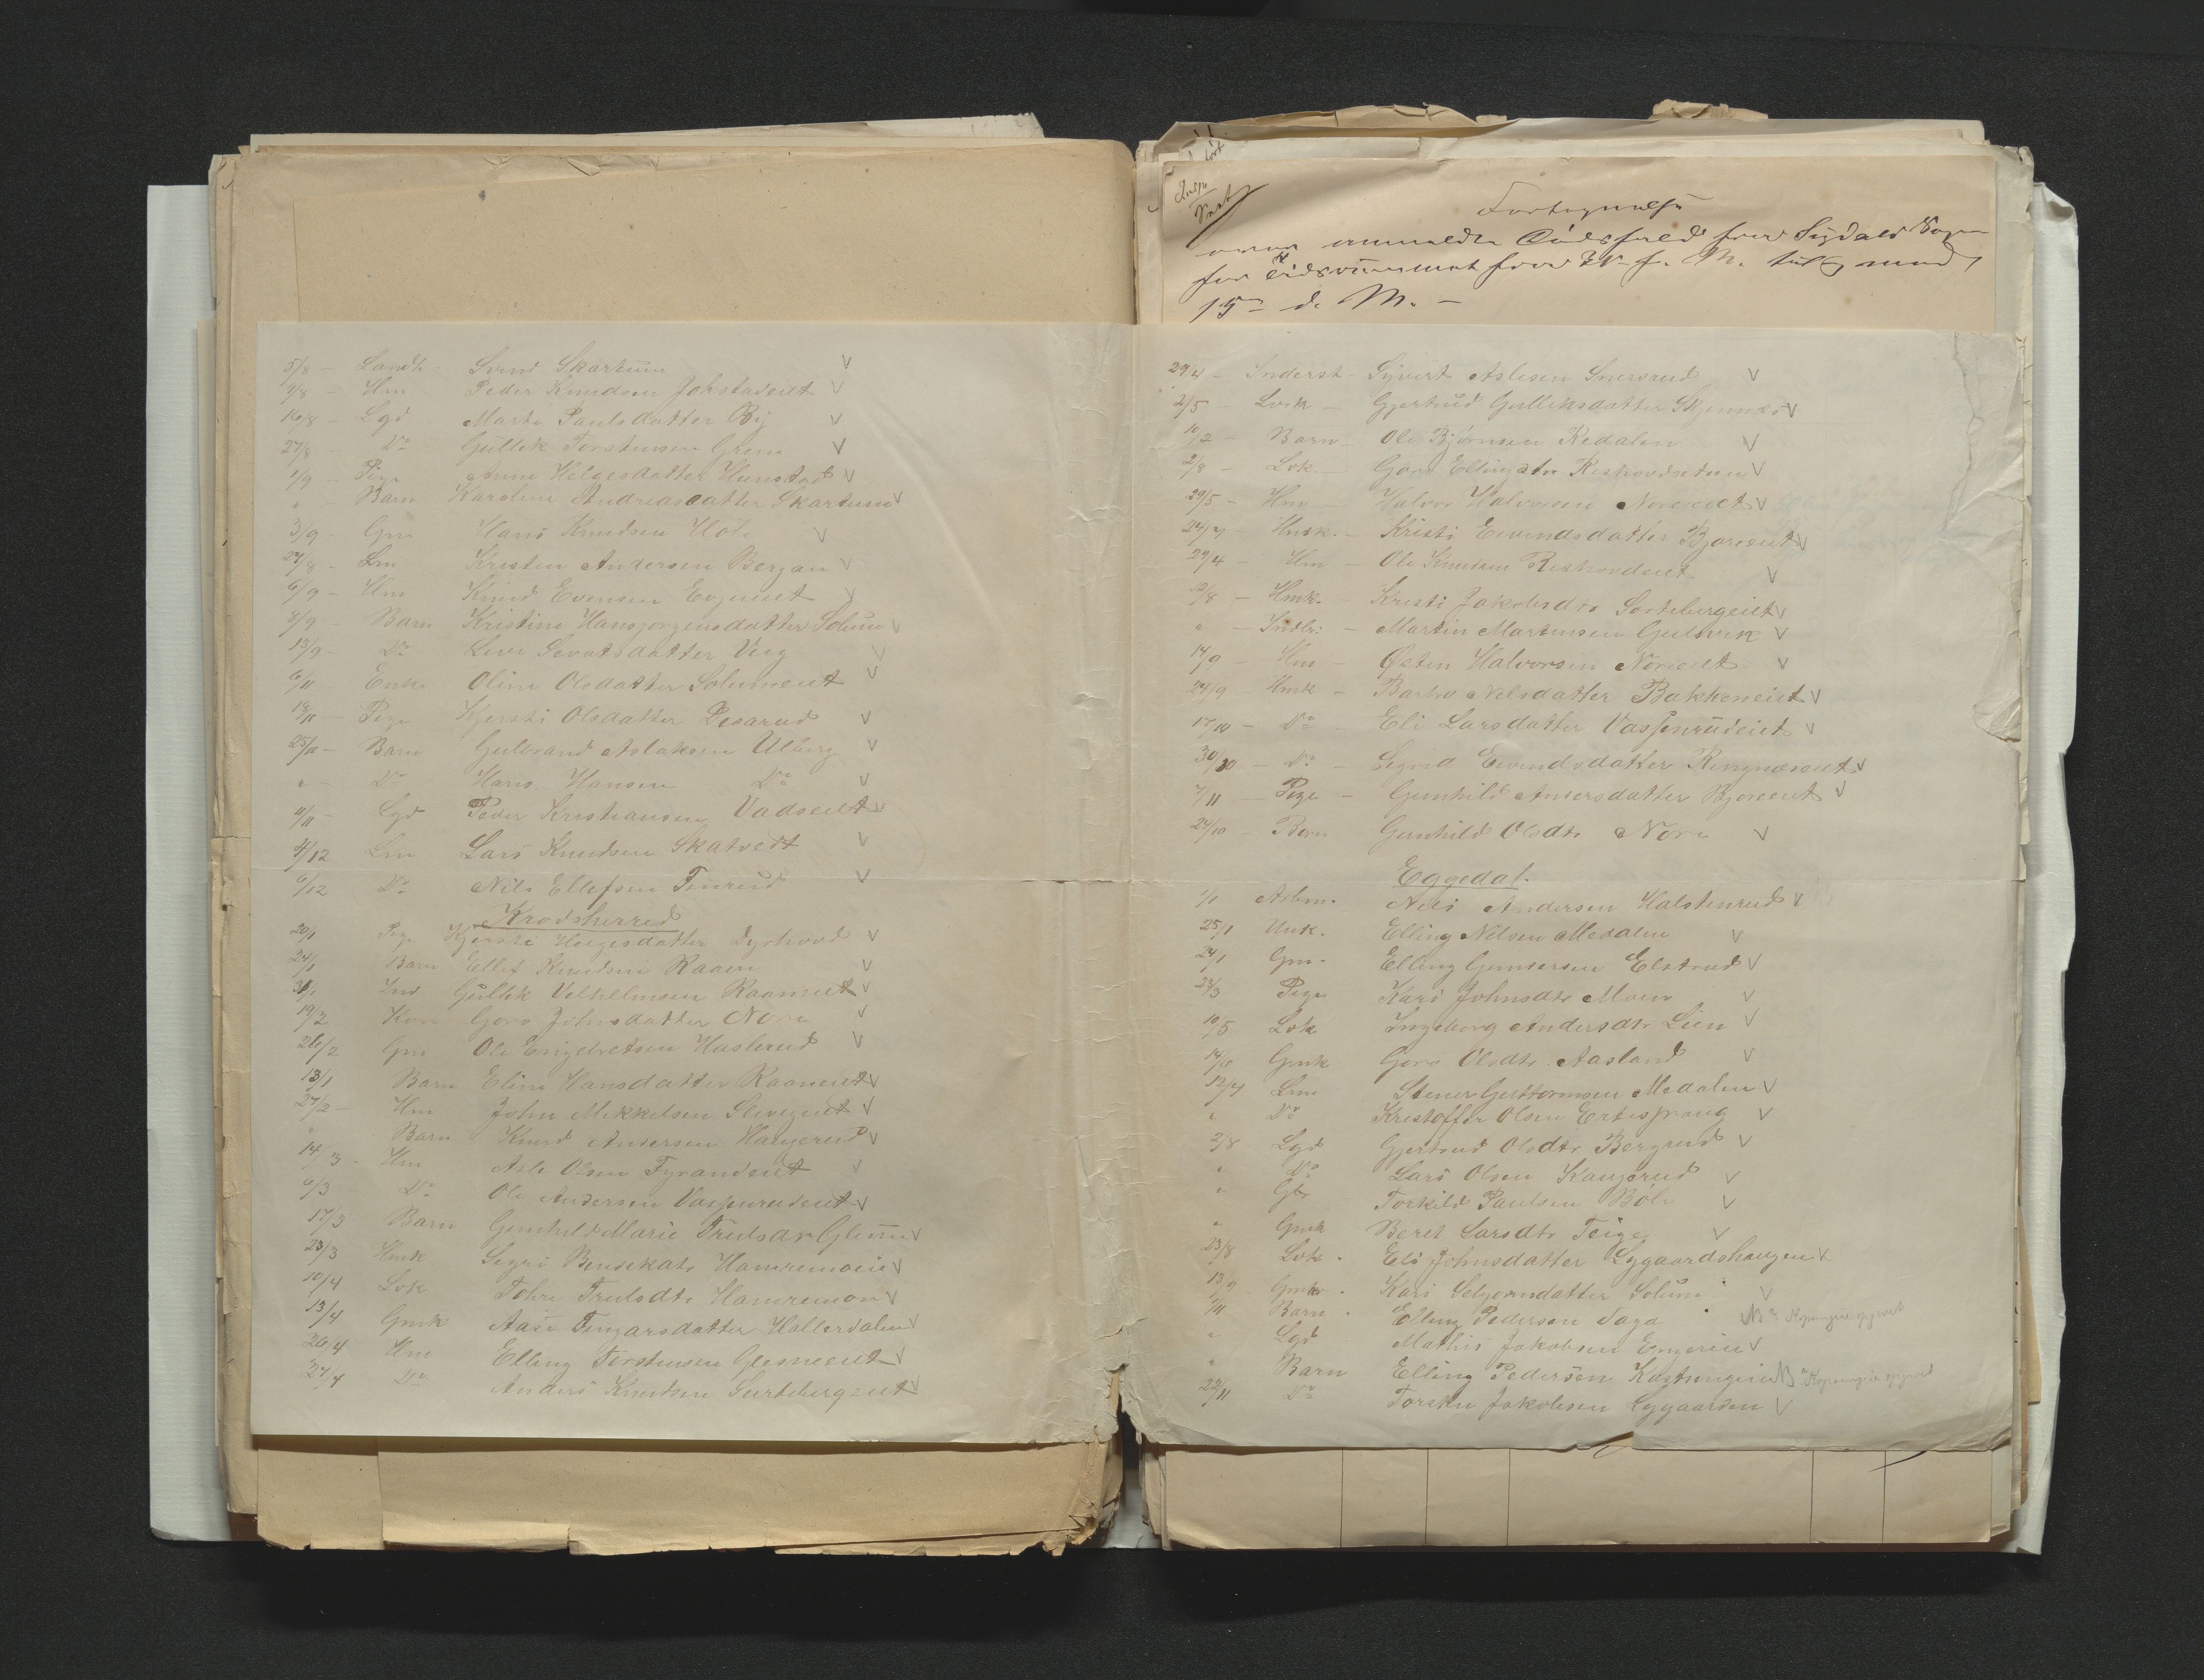 5/8 - Landh. Svend Skartum V
9/8 - Hm Peder Knudsen Johstadeiet V
16/8 - Lgd Marte Paulsdatter By V
27/8 - Do Gullik Torstensen Green V
1/9 - Pige Anne Helgesdatter Hunstad V
" - Barn Karoline Andreasdatter Skartum V
3/9 - Gm Hans Knudsen Hole V
27/8 - Lm Kristen Andersen Bergan V
6/9 - Hm Knud Evensen Evjueiet V
8/9 - Barn Kristine Hansjørgensdatter Solum V
13/9 - Do Live Sevatsdatter Veeg V
6/11 Enke Oline Olsdatter Solumeiet V
18/11 - Pige Kjersti Olsdatter Desarud V
25/11 - Barn Gulbrand Aslaksen Ulberg V
" - Do Hans Hansen Do V
11/11 - Lgd Peder Kristiansen Vadseiet V
4/12 Lm Lars Knudsen Skatvedt V
6/12 Do Nils Ellefsen Finrud V
Krødsherred
20/1 Pige Kjersti Helgesdatter Dyrhovd V
24/1 Barn Ellef Knudsen Raaen V
31/1 Ind Gullik Vilhelmsen Raaeneiet V
19/2 Kone Goro Johnsdatter Nore V
26/2 Gm Ole Engebretsen Haslerud V
13/1 Barn Eline Hansdatter Raaneiet V
27/2 - Hm John Mikkelsen Slevigeiet V
" Barn Knud Andersen Haugerud V
14/3 - Hm Asle Olsen Fyrandeiet V
6/3 - Do Ole Andersen Vaspenrudeiet V
17/3 Barn Gunhild Marie Trulsdr Glesne V
23/3 Hmk Sigri Bendiksdtr Hamremoeie V
10/4 Lvk Tohre Trulsdtr Hamremoen V
13/4 Gmk Aase Fingarsdatter Hallerdalen V
20/4 Hm Elling Torstensen Glesneeiet V
27/4 Do Anders Knudsen Surtebergeiet V
Fortegnelse
over anmeldte Dødsfald fra Sigdals Sogn
for Tidsrummet fra f. M. til med
15de d. M. -
29/4 - Inderst - Syvert Aslesen Snersrud V
2/5 - Lvk - Gjertrud Gulliksdatter Skjennes V
10/2 - Barn - Ole Bjørnsen Redalen V
2/8 - Lvk - Goro Ellingsdtr Reshovdseteren V
29/5 - Hm - Halvor Halvorsen Noreeiet V
24/7 - Hmsk. - Kristi Eivindsdatter Bjoreeiet V
29/4 - Hm - Ole Knudsen Reshovdeiet V
12/8 - Hmk. - Kristi Jakobsdtr Sortebergeiet V
" - Indbr: - Martin Martinsen Gulsvik V
14/9 - Hm - Østen Halvorsen Noreeiet V
24/9 - Hmk - Barbo Nilsdatter Bakkeneiet V
17/10 - Do - Eli Larsdatter Vasspenrudeiet V
30/10 - Do - Sigrid Eivindsdatter Ringneseiet V
7/11 - Pige - Gunhild Andersdatter Bjoreeiet V
24/10 - Barn Gunhild Olsdtr Nore V
Eggedal.
1/1 Arbm. Nils Andersen Halstenrud V
25/1 Unk. Elling Nilsen Medalen V
24/1 Gm. Elling Gunnersen Elstrud V
23/3 Pige Kari Johnsdtr Moen V
10/5 Lvk Ingeborg Andersdtr Lien V
14/6 Gmk Goro Olsdtr Aasland V
12/7 Lm Stener Guttormsen Medalen V
" Do Kristoffer Olsen Ertesprang V
2/8 Lgd Gjertrud Olsdtr Bergrud V
" Do Lars Olsen Kaugerud V
" Gbr Torkild Paulsen Bøle V
" Gmk Beret Larsdtr Teige V
23/8 Lvk. Eli Johnsdatter Lygaardshaugen V
13/9 Gmk - Kari Selgeornsdatter Solum V
1/11 Barn - Elling Pedersen Saga NB
" Lgd Mathis Jakobsen Engerin V
" Barn Elling Pedersen NB
22/11 Do Torsten Jakobsen Lygaarden V